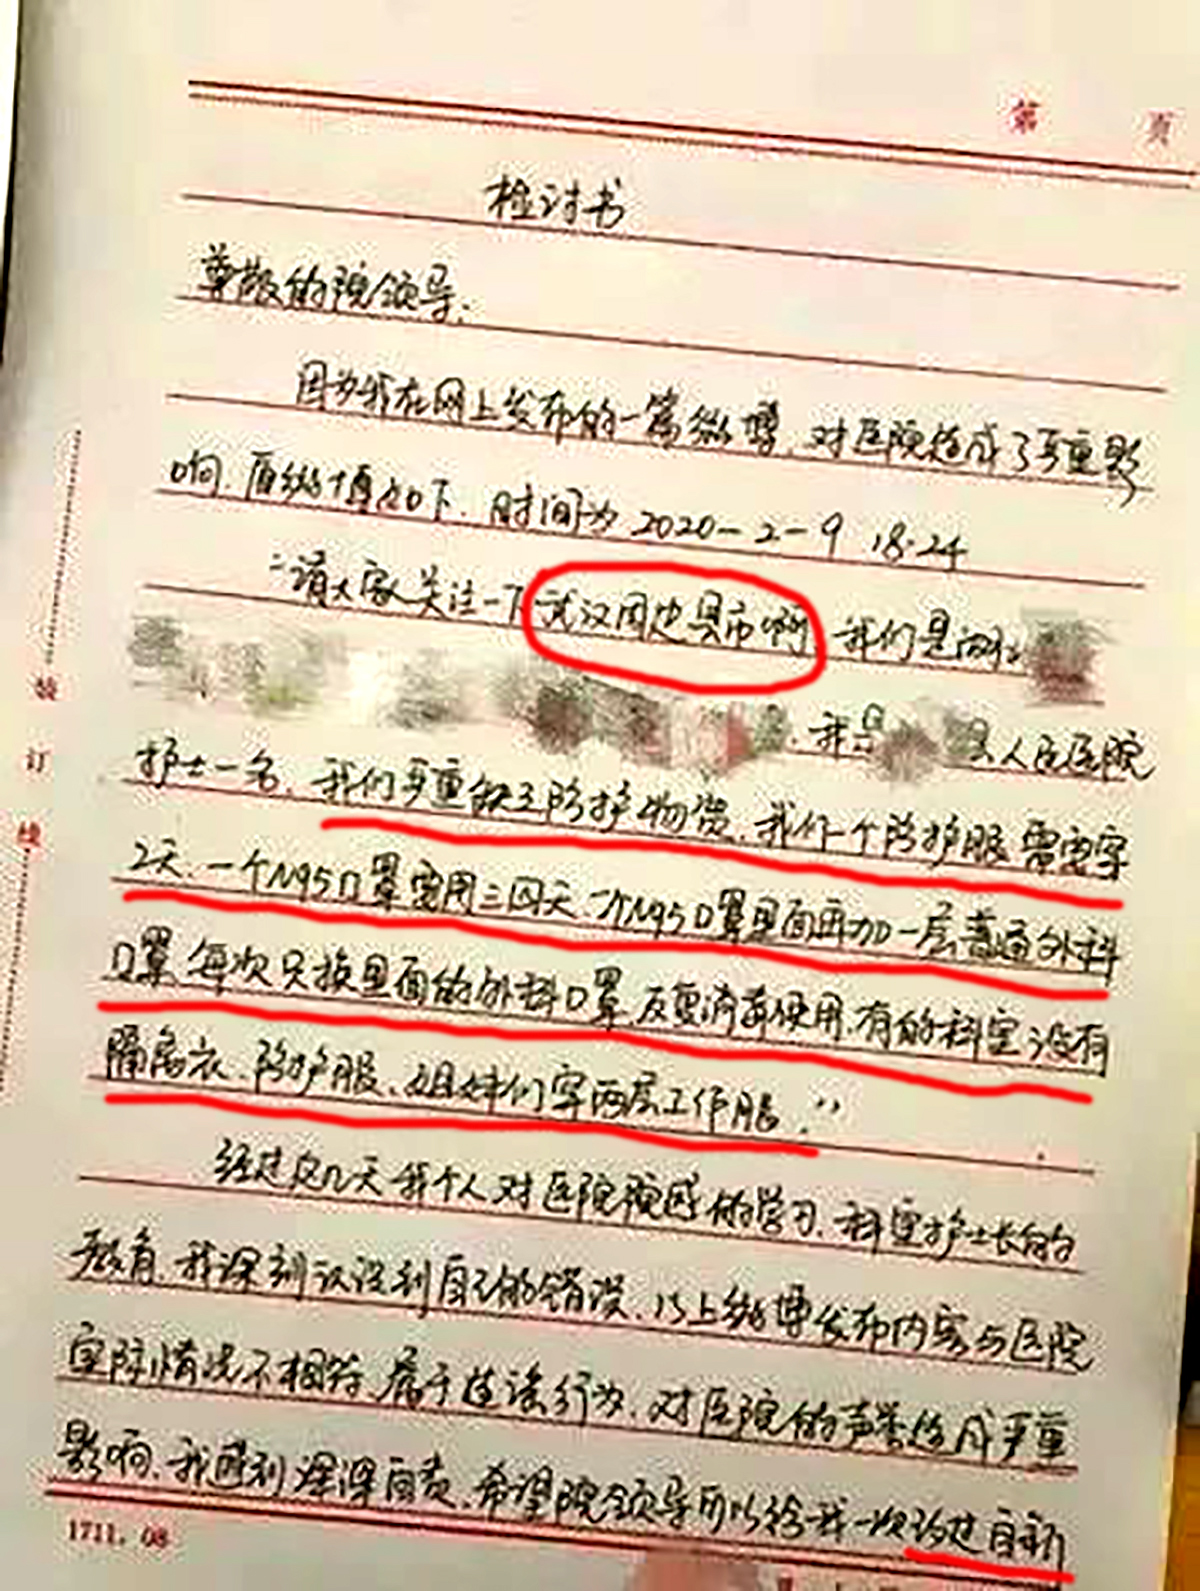 第 页
检讨书
尊敬的院领导：
因为我在网上发布的一篇微博，对医院造成了严重影
响，原微博如下，时间为2020-2-9 18:24
“请大家关注一下武汉周边县市啊，我们是湖北
，我是 县人民医院
护士一名，我们严重缺乏防护物资，我们一个防护服需要穿
2天，一个N95口罩要用三四天，一个N95口罩里面再加一层普通外科
口罩，每次只换里面的外科口罩，反复消毒使用，有的科室没有
隔离衣、防护服，姐妹们穿两层工作服。”
经过这几天我个人对医院院感的学习，科室护士长的
教育，我深刻认识到自己的错误，以上微博发布内容与医院
实际情况不相符，属于造谣行为，对医院的声誉造成严重
影响，我感到深深自责，希望院领导可以给我一次改过自新
装
订
线
1711.08